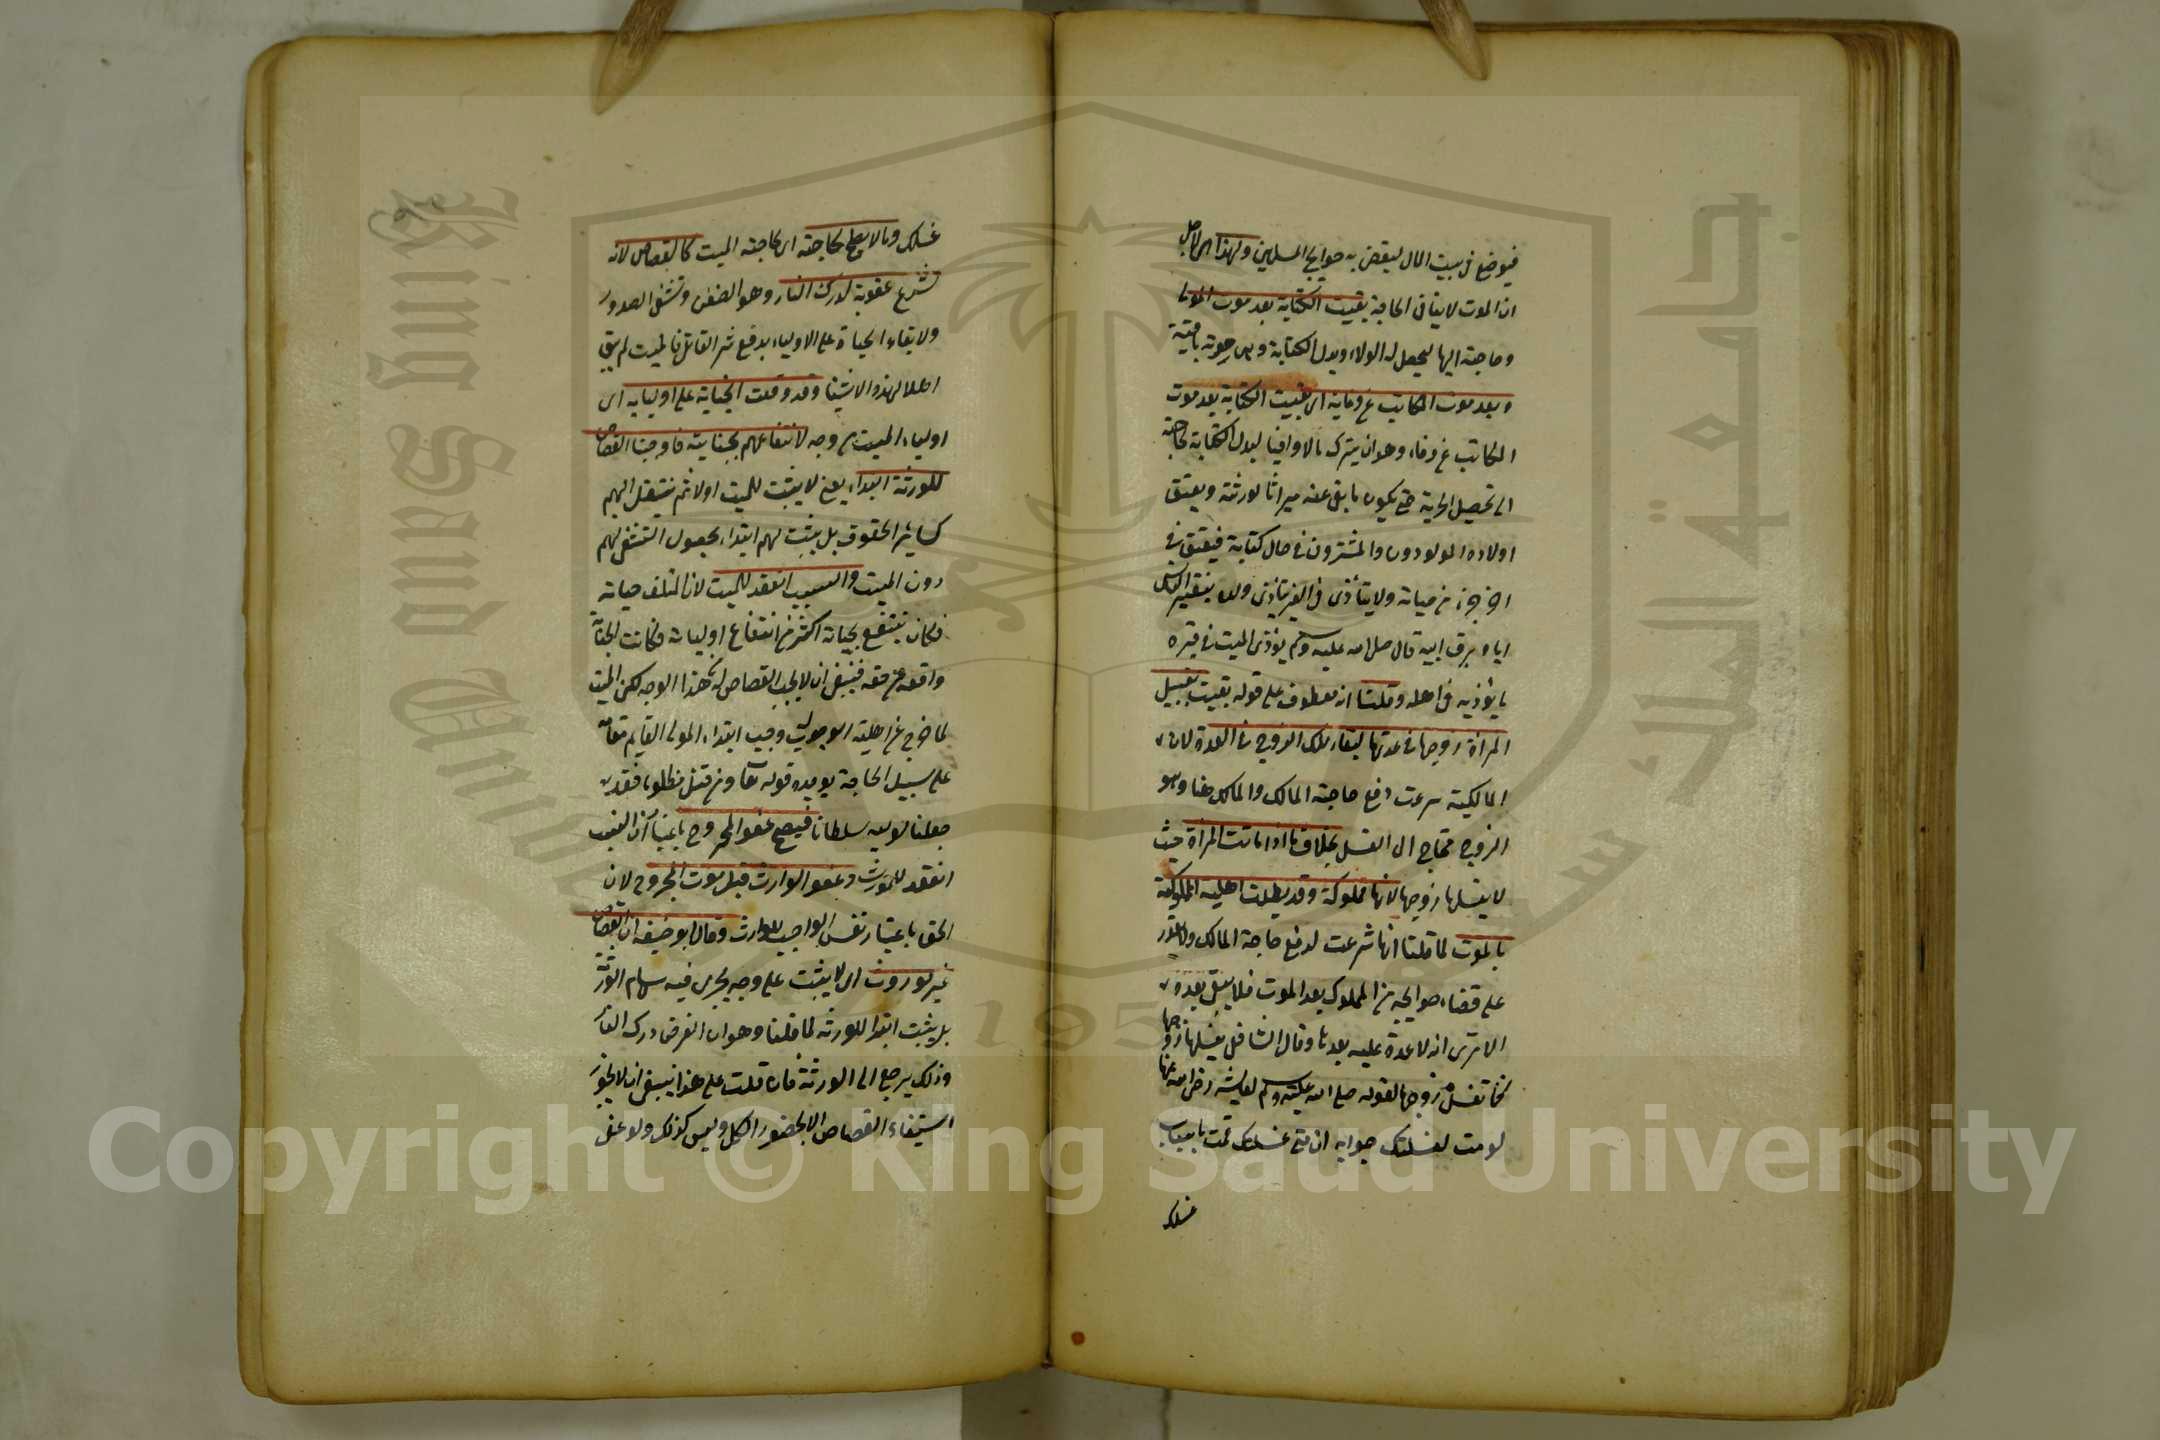 فيوضع في بيت المال ليقضى به حوايج المسلمين ولهذا اي لاجل
ان الموت لا ينافي الحاجة بقيت الكتابة بعد موت المولى
وحاجته اليها ليحصل له الولاء وبدل الكتابة وهي حوته باقية
وبعد موت المكاتب عن وفاية اي بقيت الكتابة بعد موت
المكاتب عن وفاء وهو ان يترك مالا وافيا لبدل الكتابة لحاجته
الى تحصيل الحرية حتى يكون ما بقى عنه ميراثا لورثته ويعتق
اولاده المولودون والمشترون في حال كتابة فيعتق في
اخر جزء من حياته ولا يتأذى
اياه برق ابيه قال صلى الله عليه وسلم يؤذى الميت في قبره
ما يؤذيه في اهله وقلنا انه معطوف على قوله بقيت تغسيل
المرأة زوجها في عدتها لبقاء ملك الزوج في العدة لان
المالكية شرعت دفع حاجة المالك والمالك هنا وهو
الزوج محتاج الى الغسل بخلاف ما اذا ماتت المرأة حيث
لا يغسلها زوجها لانها مملوكة وقد بطلت اهلية المملوكية
بالموت لما قلنا انها شرعت لدفع حاجة المالك ولا يقدر
على قضاء حوايجه من المملوك بعد الموت فلا يبقى بعده
الا ترى انه لا عدة عليه بعدها وقال الشافعي يغسلها زوجها
كما تغسل زوجها لقوله صلى الله عليه وسلم لعايشة رضي الله عنها
لو مت لغسلتك جوابه ان معنى غسلتك قمت باسباب
غسلك
غسلك وما لا يصلح لحاجته اي لحاجته الميت كالقصاص لانه
شرع عقوبة لدرك الثار وهو الضغن وتشفى الصدور
ولابقاء الحياة على الاولياء بدفع شر القاتل فالميت لم يبق
اهلا لهذه الاشياء وقد وقعت الجناية على اوليايه اي
اولياء الميت من وجه لانتفاعهم بحياته فاوجبنا القصاص
للورثة ابتداء يعني لا يثبت للميت اولا ثم ينتقل اليهم
كساير الحقوق بل يثبت لهم ابتداء بحصول التشفى لهم
دون الميت والسبب انعقد للميت لان المتلف حياته
فكان ينتفع بحياته اكثر من انتفاع اوليائه فكانت الجناية
واقعة في حقه فينبغي ان لا يجب القصاص له بهذا الوجه لكن الميت
لما خرج عن اهلية الوجوب وجب ابتداء المولى القايم مقامه
على سبيل الحاجة يويده قوله تعا ومن قتل مظلوما فقد
جعلنا لوليه سلطانا فيصح عفو المجروح باعتبار ان السبب
انعقد للمورث وعفو الوارث قبل موت المجروح لان
الحق باعتبار نفس الواجب للوارث وقال ابو حنيفه ان القصاص
غير موروث اي لا يثبت على وجه يجري فيه سهام الورثة
بل يثبت ابتداء للورثه لما قلنا وهو ان الغرض درك الثار
وذلك يرجع الى الورثة فان قلت على هذا ينبغى ان لا يجوز
استيفاء القصاص الا بحضور الكل وليس كذلك ولو عفى
King Saud University
جامعة الملك سعود
195
Copyright © King Saud University